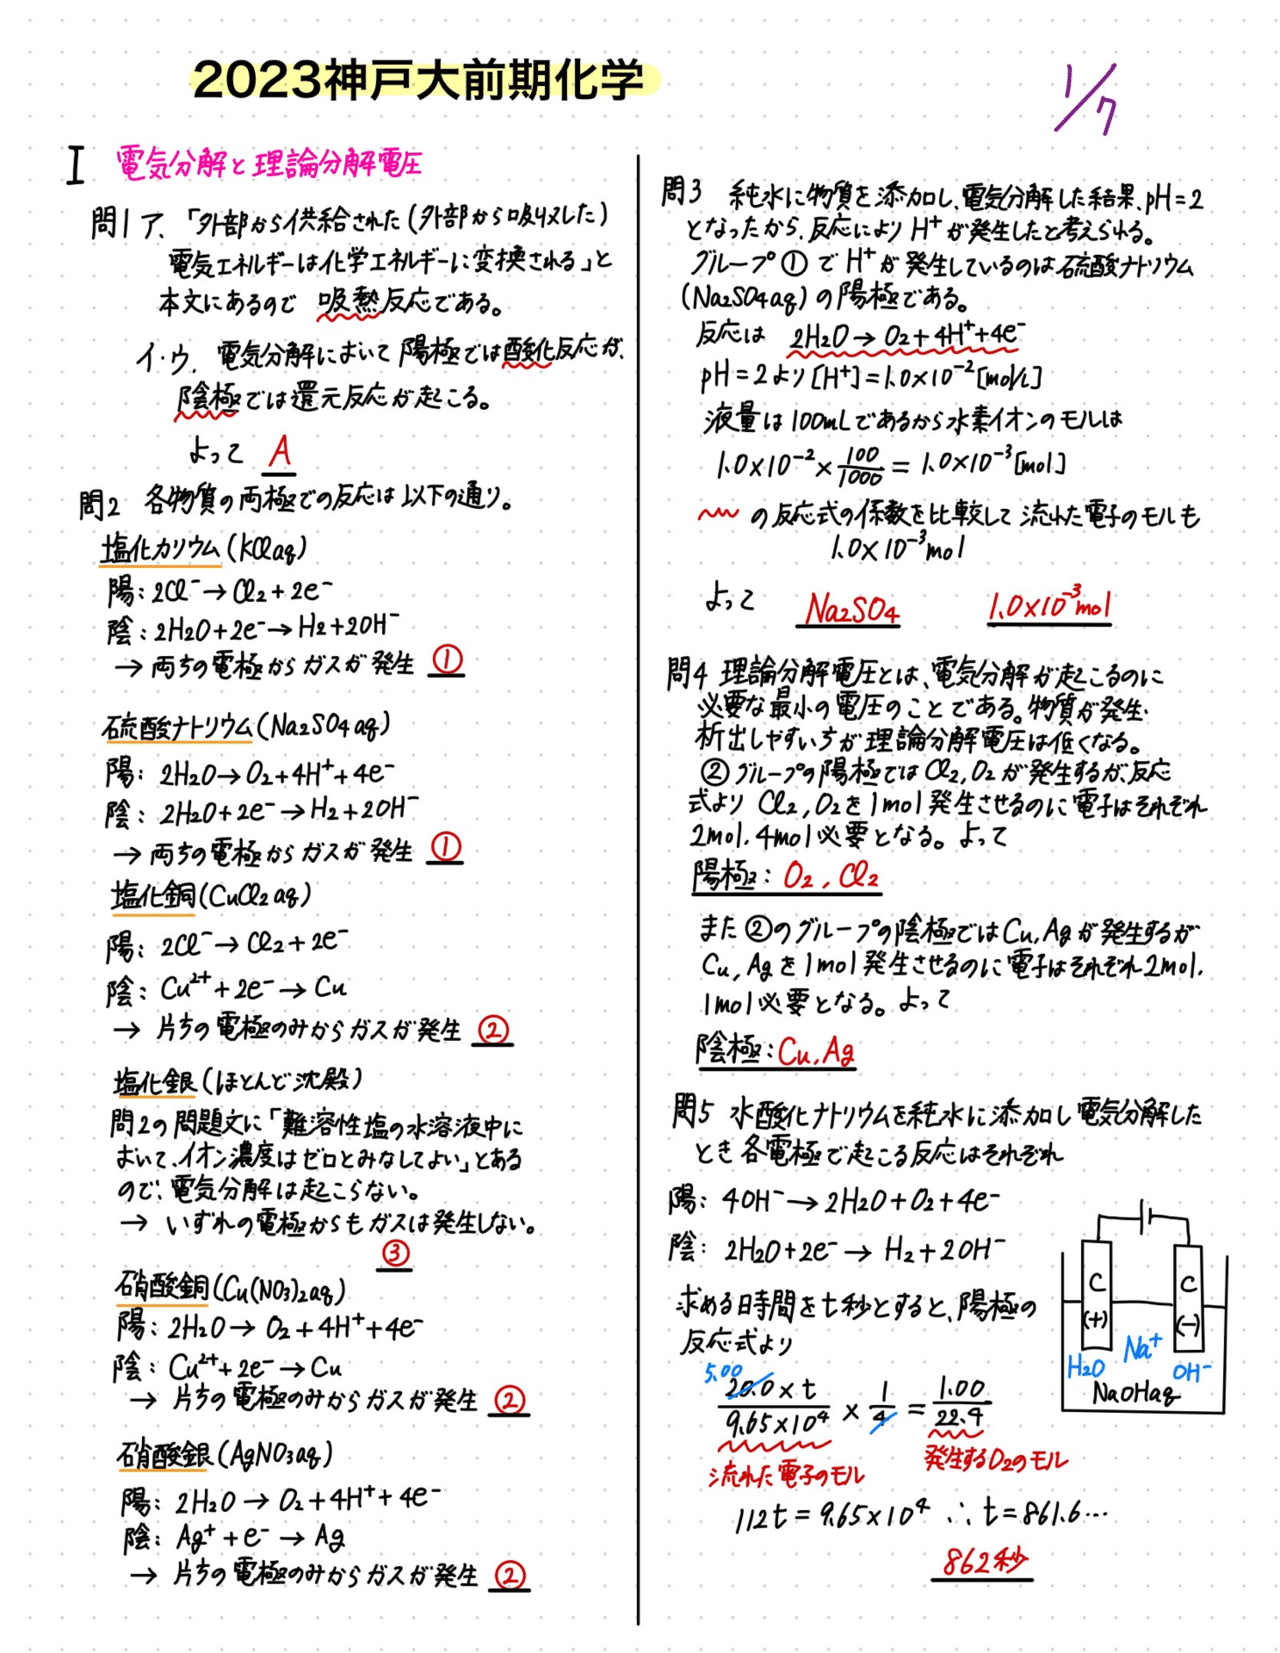 2023神戸大前期化学
1/7
I 電気分解と理論分解電圧
問1 ア、「外部から供給された(外部から吸収した)
電気エネルギーは化学エネルギーに変換される」と
本文にあるので 吸熱反応である。
イ・ウ. 電気分解において陽極では酸化反応が、
陰極では還元反応が起こる。
よって A
問2 各物質の両極での反応は以下の通り。
塩化カリウム(KClaq)
陽:2Cl⁻→Cl₂+2e⁻
陰:2H₂O+2e⁻→H₂+2OH⁻
→両方の電極からガスが発生 ①
硫酸ナトリウム(Na₂SO₄aq)
陽: 2H₂O→O₂+4H⁺+4e⁻
陰: 2H₂O+2e⁻→H₂+2OH⁻
→両方の電極からガスが発生 ①
塩化銅(CuCl₂aq)
陽: 2Cl⁻→Cl₂+2e⁻
陰: Cu²⁺+2e⁻→Cu
→ 片方の電極のみからガスが発生 ②
塩化銀(ほとんど沈殿)
問2の問題文に「難溶性塩の水溶液中に
おいて、イオン濃度はゼロとみなしてよい」とある
ので、電気分解は起こらない。
→ いずれの電極からもガスは発生しない。
③
硝酸銅(Cu(NO₃)₂aq)
陽: 2H₂O→ O₂+4H⁺+4e⁻
陰: Cu²⁺+2e⁻→Cu
→ 片方の電極のみからガスが発生 ②
硝酸銀(AgNO₃aq)
陽: 2H₂O → O₂+4H⁺+4e⁻
陰: Ag⁺+e⁻→Ag
→ 片方の電極のみからガスが発生 ②
問3 純水に物質を添加し、電気分解した結果、pH=2
となったから、反応によりH⁺が発生したと考えられる。
グループ①でH⁺が発生しているのは硫酸ナトリウム
(Na₂SO₄aq)の陽極である。
反応は 2H₂O→O₂+4H⁺+4e⁻
pH=2より[H⁺]=1.0×10⁻²[mol/L]
液量は100mLであるから水素イオンのモルは
1.0×10⁻²×100/1000=1.0×10⁻³[mol]
〰の反応式の係数を比較して流れた電子のモルも
1.0×10⁻³mol
よって Na₂SO₄ 1.0×10⁻³mol
問4 理論分解電圧とは、電気分解が起こるのに
必要な最小の電圧のことである。物質が発生・
析出しやすい方が理論分解電圧は低くなる。
②グループの陽極ではCl₂,O₂が発生するが、反応
式より Cl₂,O₂を1mol発生させるのに電子はそれぞれ
2mol,4mol必要となる。よって
陽極:O₂,Cl₂
また②のグループの陰極ではCu,Agが発生するが
Cu,Agを1mol発生させるのに電子はそれぞれ2mol,
1mol必要となる。よって
陰極:Cu,Ag
問5 水酸化ナトリウムを純水に添加し電気分解した
とき各電極で起こる反応はそれぞれ
陽: 4OH⁻→2H₂O+O₂+4e⁻
陰: 2H₂O+2e⁻→H₂+2OH⁻
求める時間をt秒とすると、陽極の
反応式より
5.00
20.0×t/9.65×10⁴×1/4=1.00/22.4
流れた電子のモル 発生するO₂のモル
112t=9.65×10⁴ ∴t=861.6…
862秒
C C
(+) (−)
H₂O Na⁺ OH⁻
NaOHaq